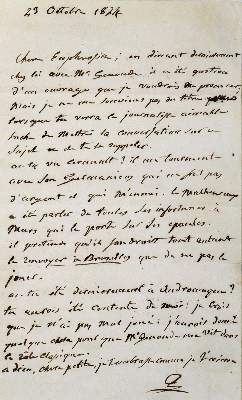 23 Octobre 1824
chere Euphrosine; en dinant dernierement
chez lui avec Mr. Genoude il a été question
d'un ouvrage que je voudrais me procurer,
Mais je ne me souviens pas du titre
lorsque tu verra le journaliste aimable
tache de Mettre la conversation sur ce
Sujet et de te le rappeler.
as-tu vu Arnault? il me tourmente
avec Son Germanicus qui ne fait pas
d'argent et qui m'ennui. Le Malheureux
a été parler de toutes Ses infortunes à
Mars qui le porte sur Ses épaules.
il pretend qu'il faudroit tout autant
le renvoyer à Bruxelles que de ne pas le
jouer.
as-tu été dernierement à Andromaque?
tu aurois été contente de moi: je crois
que je n'ai pas mal joué: j'aurois donné
quelque chose pour que Mr Genoude me vit dans
le role
adieu, chere petite, je t'embrasse comme je t'aime